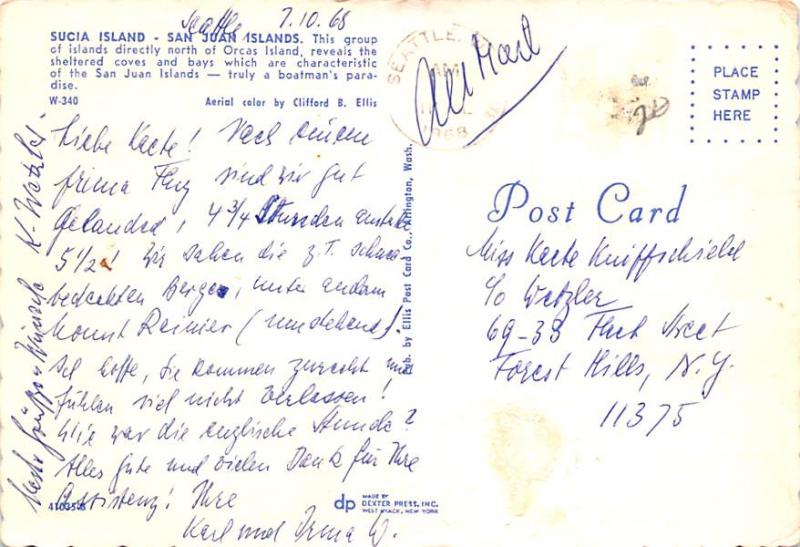 Seattle 7.10.68
SUCIA ISLAND - SAN JUAN ISLANDS. This group
of islands directly north of Orcas Island, reveals the
sheltered coves and bays which are characteristic
of the San Juan Islands — truly a boatman's para-
dise.
W-340 Aerial color by Clifford B. Ellis
Liebe Kaete! Nach einem
prima Flug sind wir gut
gelandet, 4 3/4 Stunden anstatt
5 1/2! Wir sahen die z.T. schnee
bedeckten Berge, unter andem
Mount Rainier (umstehend)!
Ich hoffe, Sie kommen zurecht und
fühlen sich nicht verlassen!
Wie war die englische Stunde?
Alles gute und vielen Dank für Ihre
Assistenz! Ihre
Karl und Irma W.
Beste Grüsse + Wünsche K. Wetzler
41035-B
Pub. by Ellis Post Card Co., Arlington, Wash.
dp MADE BY
DEXTER PRESS, INC.
WEST NYACK, NEW YORK
SEATTLE
AM
1968
Air Mail
20
PLACE
STAMP
HERE
Post Card
Miss Kaete Kniffschield
c/o Wetzler
69-38 Fleet Street
Forest Hills, N.Y.
11375